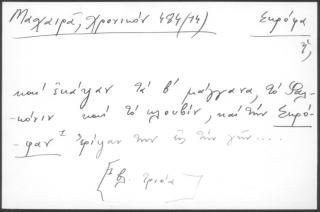 Μαχαιρᾶ, Χρονικόν 484/14) Σκρόφα
ἡ,
καὶ ἐκάψαν τὰ β´ μάγγανα, τὸ Φαλ-
κόνιν καὶ τὸ κλουβίν, καὶ τὴν Σκρό-
φαν ἐρίψαν την εἰς τὴν γῆν....